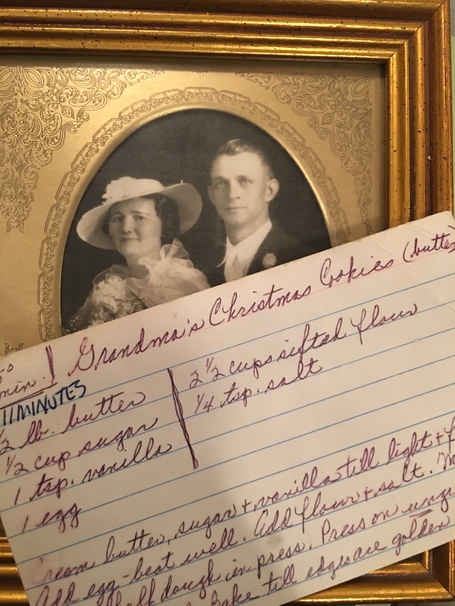 Grandma's Christmas Cookies (butter
min.
11 MINUTES
1/2 lb. butter
1/2 cup sugar
1 tsp. vanilla
1 egg
2 1/2 cups sifted flour
1/4 tsp. salt
Cream butter, sugar + vanilla till light + f
Add egg-beat well. Add flour + salt.
half dough in press. Press on
Bake till edges are golden